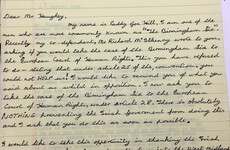 Dear Mr Haughey,
my name is Paddy Joe Hill, I am one of the
men who are most commonly known as "The Birmingham Six.
Recently my co-defendant, Mr Richard McIlkenny wrote to you
asking if you would take the case of the Birmingham Six to
the European Court of Human Rights. This you have refused
to do - stating that under article 25 of the convention, you
could not HELP us. I would like to remind you of what you
said about us while in opposition. I now ask you to
take the case of the Birmingham Six to the European
Court of Human Rights, under article 24. There is absolutely
NOTHING preventing the Irish Government from doing this
and I ask that you do this as soon as possible.
I would like to take this opportunity in thanking the Irish
the West Midlands